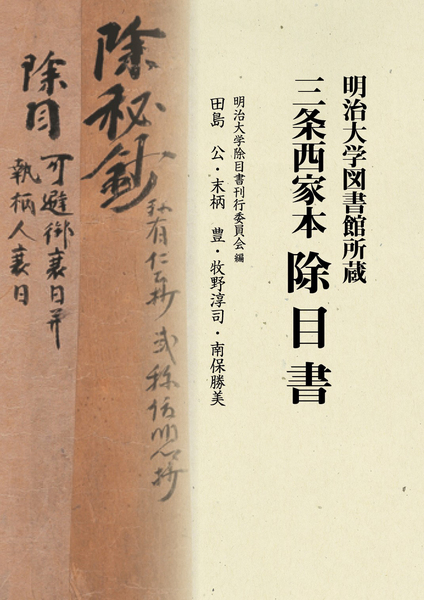 明治大学図書館所蔵
三条西家本 除目書
明治大学除目書刊行委員会 編
田島 公・末柄 豊・牧野淳司・南保勝美
除秘鈔
私有仁五抄 或称信明公抄
除目 可避御衰日并
執柄人衰日